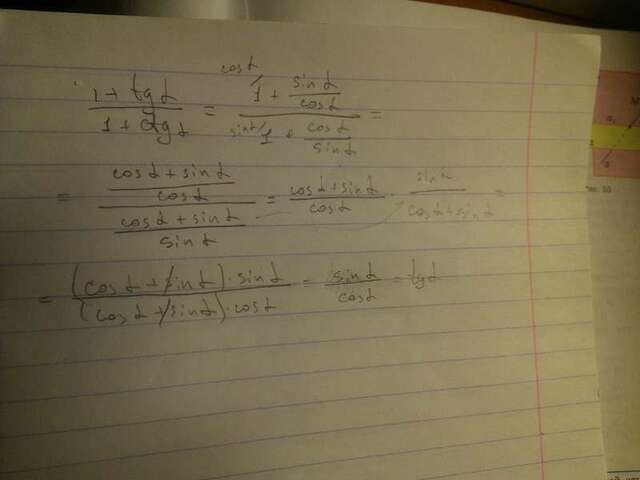 (1 + tg α)/(1 + ctg α) = (cos α/ 1 + (sin α)/(cos α))/(sin α/ 1 + (cos α)/(sin α)) =
= ((cos α + sin α)/(cos α))/((cos α + sin α)/(sin α)) = (cos α + sin α)/(cos α) · (sin α)/(cos α + sin α) =
= ((cos α + sin α) · sin α)/((cos α + sin α) · cos α) = (sin α)/(cos α) = tg α